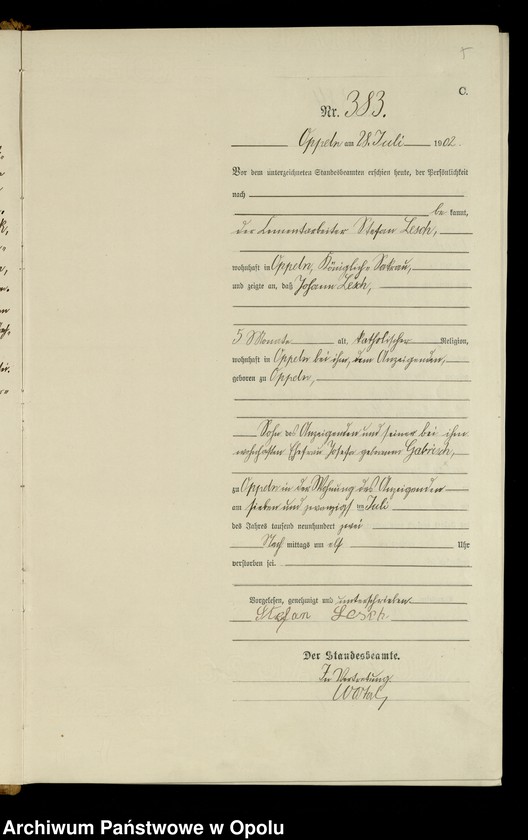 C.
Nr. 383.
Oppeln am 28. Juli 1902.
Vor dem unterzeichneten Standesbeamten erschien heute, der Persönlichkeit
nach
be kannt,
der Cementarbeiter Stefan Lesch,
wohnhaft in Oppeln, Königliche Sakrau,
und zeigte an, daß Johann Lesch,
5 Monate alt, katholischer Religion,
wohnhaft in Oppeln bei ihm, dem Anzeigenden,
geboren zu Oppeln,
Sohn des Anzeigenden und seiner bei ihm
wohnhaften Ehefrau Josefa geborenen Gabrisch,
zu Oppeln in der Wohnung des Anzeigenden
am sieben und zwanzigsten Juli
des Jahres tausend neunhundert zwei
Nach mittags um elf Uhr
verstorben sei.
Vorgelesen, genehmigt und unterschrieben
Stefan Lesch
Der Standesbeamte.
In Vertretung
Archiwum Państwowe w Opolu